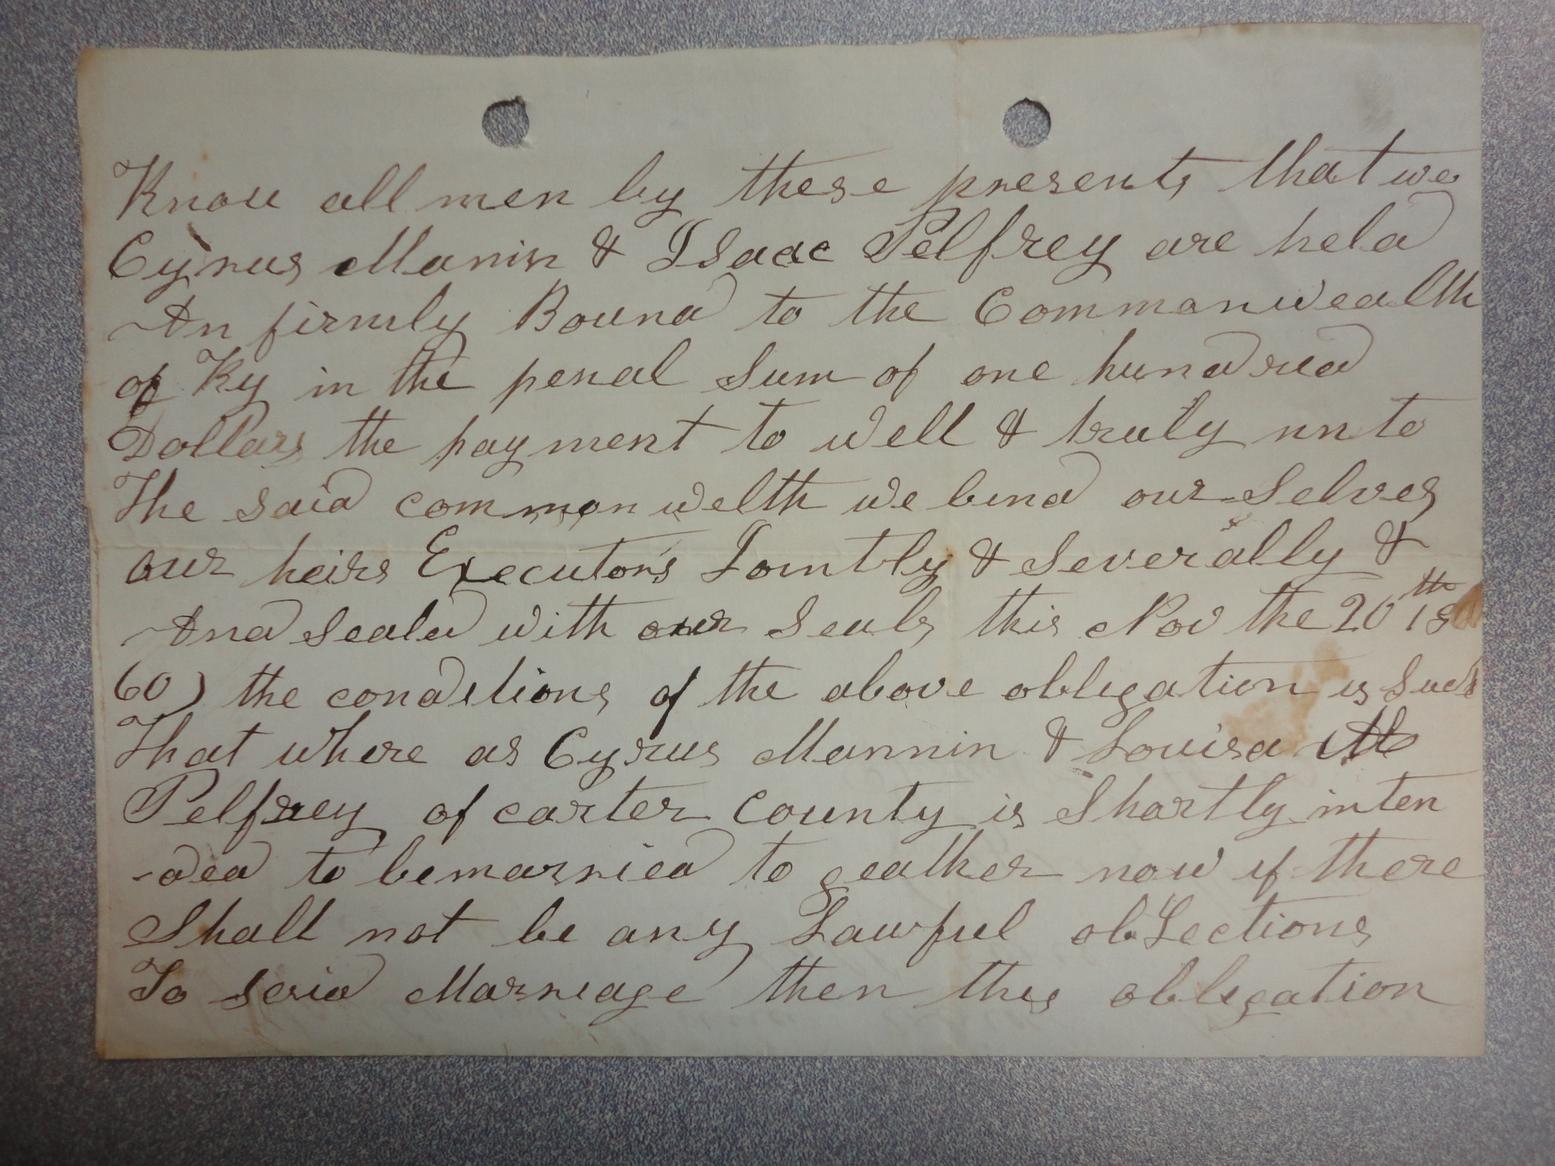 Know all men by these presents that we
Cyrus Manin & Isaac Pelfrey are held
An firmly Bound to the Commonwealth
of Ky in the penal Sum of one hundred
Dollars the payment to well & truly unto
The said commonwelth we bind our-Selves
our heirs Executors Jointly & Severally &
And seald with our Seals this Nov the 20th 18
60) the conditions of the above obligation is Such
That where as Cyrus Mannin & Louisa
Pelfrey of carter county is Shortly inten
-ded to bemarried to geather now if there
Shall not be any Lawful obJections
To Said Marriage then this obligation